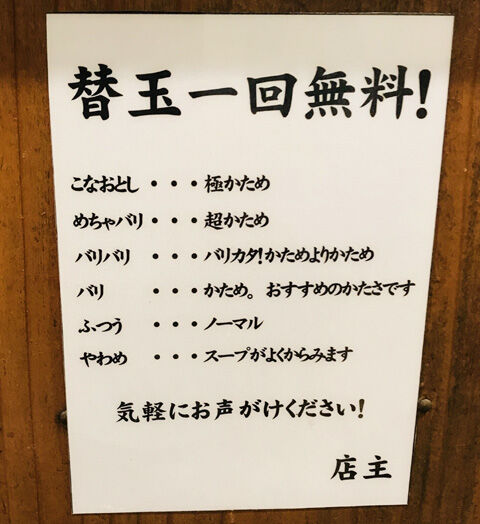 替玉一回無料!
こなおとし・・・極かため
めちゃバリ・・・超かため
バリバリ ・・・バリカタ!かためよりかため
バリ ・・・かため。おすすめのかたさです
ふつう ・・・ノーマル
やわめ ・・・スープがよくからみます
気軽にお声がけください!
店主